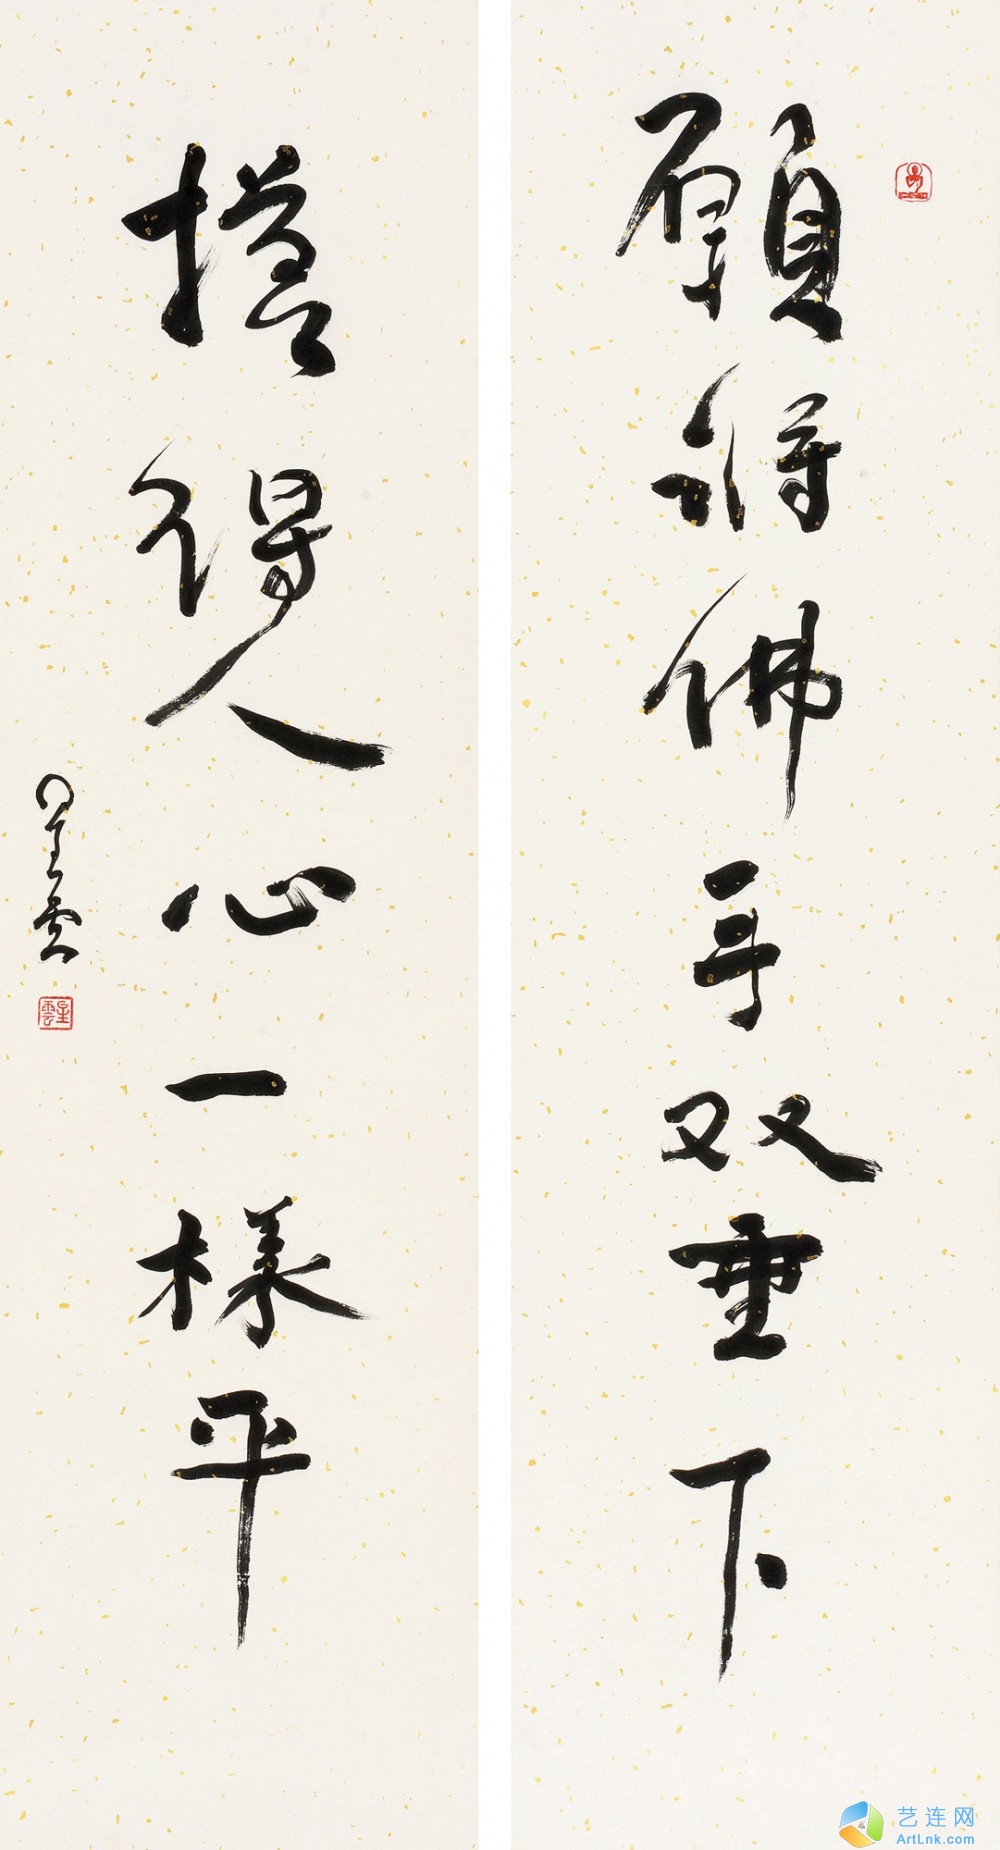 願將佛手双垂下
摸得人心一樣平
星雲
星雲
艺连网
ArtLnk.com